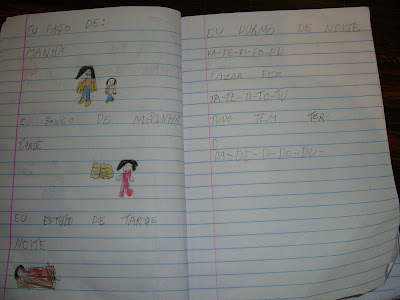 EU FAÇO DE:
MANHÃ
EU BRINCO DE MAINHA
TARDE
EU ESTUDO DE TARDE
NOITE
EU DURMO DE NOITE
FA-FE-FI-FO-FU
FEZ
TA-TE-TI-TO-TU
TUDO TEM TER
D
DA-DE-DI-DO-DU-